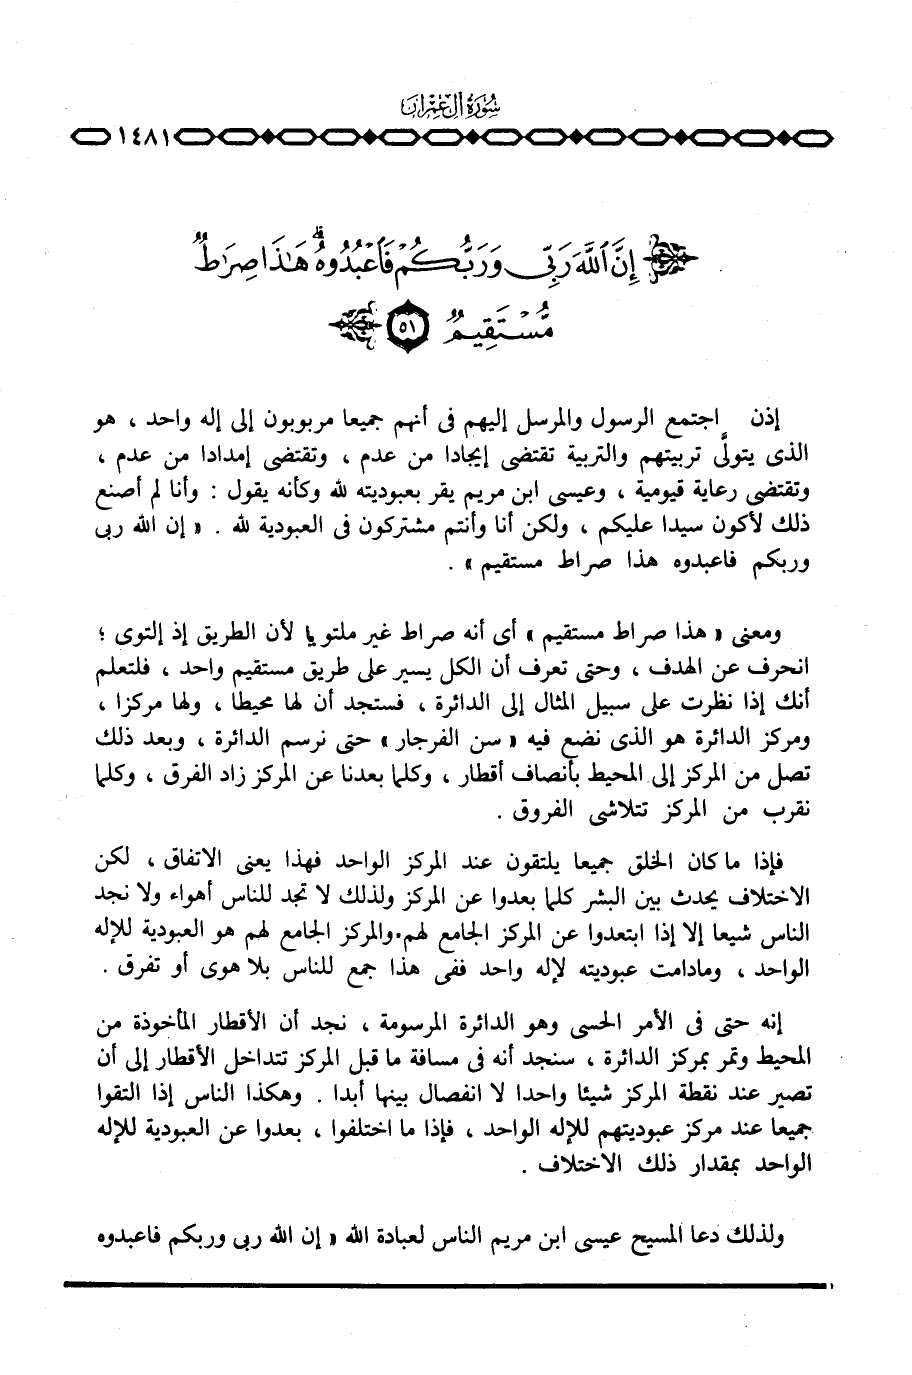 سُورَةُ آلِ عِمْرَانَ
١٤٨١
إِنَّ ٱللَّهَ رَبِّى وَرَبُّكُمْ فَٱعْبُدُوهُ ۗ هَٰذَا صِرَٰطٌ
مُّسْتَقِيمٌ ٥١
إذن اجتمع الرسول والمرسل إليهم فى أنهم جميعا مربوبون إلى إله واحد ، هو
الذى يتولَّى تربيتهم والتربية تقتضى إيجادا من عدم ، وتقتضى إمدادا من عدم ،
وتقتضى رعاية قيومية ، وعيسى ابن مريم يقر بعبوديته لله وكأنه يقول : وأنا لم أصنع
ذلك لأكون سيدا عليكم ، ولكن أنا وأنتم مشتركون فى العبودية لله . « إن الله ربى
وربكم فاعبدوه هذا صراط مستقيم » .
ومعنى « هذا صراط مستقيم » أى أنه صراط غير ملتو يا لأن الطريق إذ إلتوى ؛
انحرف عن الهدف ، وحتى تعرف أن الكل يسير على طريق مستقيم واحد ، فلتعلم
أنك إذا نظرت على سبيل المثال إلى الدائرة ، فستجد أن لها محيطا ، ولها مركزا ،
ومركز الدائرة هو الذى نضع فيه « سن الفرجار » حتى نرسم الدائرة ، وبعد ذلك
تصل من المركز إلى المحيط بأنصاف أقطار ، وكلما بعدنا عن المركز زاد الفرق ، وكلما
نقرب من المركز تتلاشى الفروق .
فإذا ما كان الخلق جميعا يلتقون عند المركز الواحد فهذا يعنى الاتفاق ، لكن
الاختلاف يحدث بين البشر كلما بعدوا عن المركز ولذلك لا تجد للناس أهواء ولا نجد
الناس شيعا إلا إذا ابتعدوا عن المركز الجامع لهم.والمركز الجامع لهم هو العبودية للإله
الواحد ، ومادامت عبوديته لإله واحد ففى هذا جمع للناس بلا هوى أو تفرق .
إنه حتى فى الأمر الحسى وهو الدائرة المرسومة ، نجد أن الأقطار المأخوذة من
المحيط وتمر بمركز الدائرة ، سنجد أنه فى مسافة ما قبل المركز تتداخل الأقطار إلى أن
تصير عند نقطة المركز شيئا واحدا لا انفصال بينها أبدا . وهكذا الناس إذا التقوا
جميعا عند مركز عبوديتهم للإله الواحد ، فإذا ما اختلفوا ، بعدوا عن العبودية للإله
الواحد بمقدار ذلك الاختلاف .
ولذلك دعا المسيح عيسى ابن مريم الناس لعبادة الله « إن الله ربى وربكم فاعبدوه